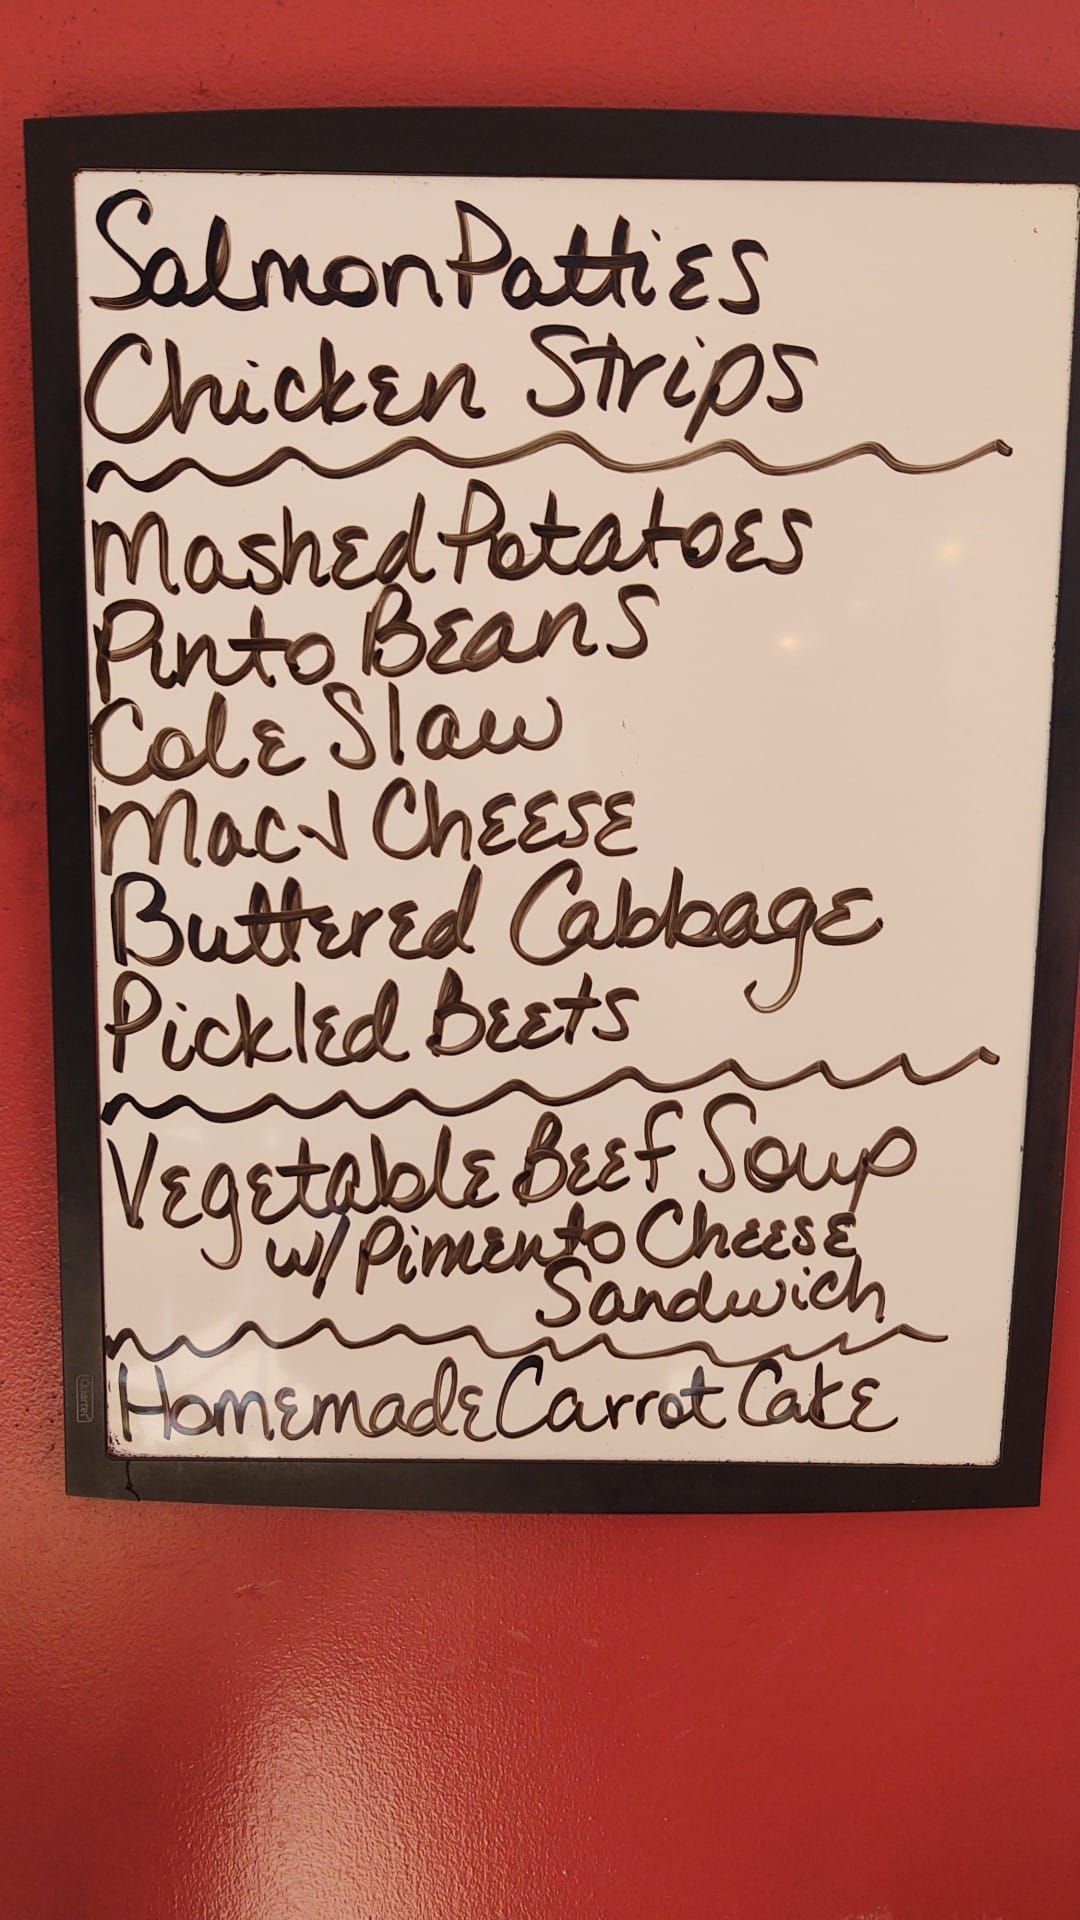 Salmon Patties
Chicken Strips
Mashed Potatoes
Pinto Beans
Cole Slaw
Mac & Cheese
Buttered Cabbage
Pickled Beets
Vegetable Beef Soup
w/ Pimento Cheese
Sandwich
Homemade Carrot Cake
Quartet